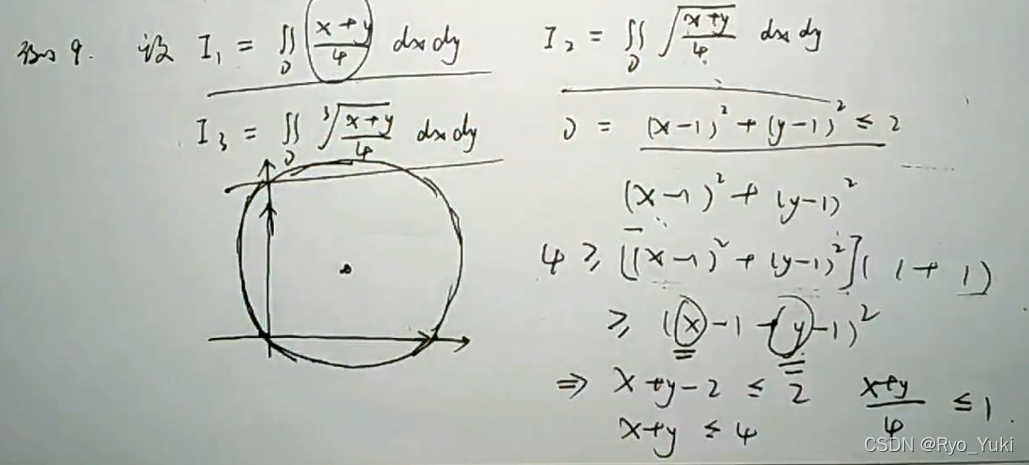 例9. 设 I₁ = ∬_D (x+y)/4 dxdy   I₂ = ∬_D √((x+y)/4) dxdy
I₃ = ∬_D ∛((x+y)/4) dxdy   D = (x-1)² + (y-1)² ≤ 2
(x-1)² + (y-1)²
4 ≥ [(x-1)² + (y-1)²](1+1)
≥ (x-1+y-1)²
⇒ x+y-2 ≤ 2   (x+y)/4 ≤ 1.
x+y ≤ 4
CSDN @Ryo_Yuki